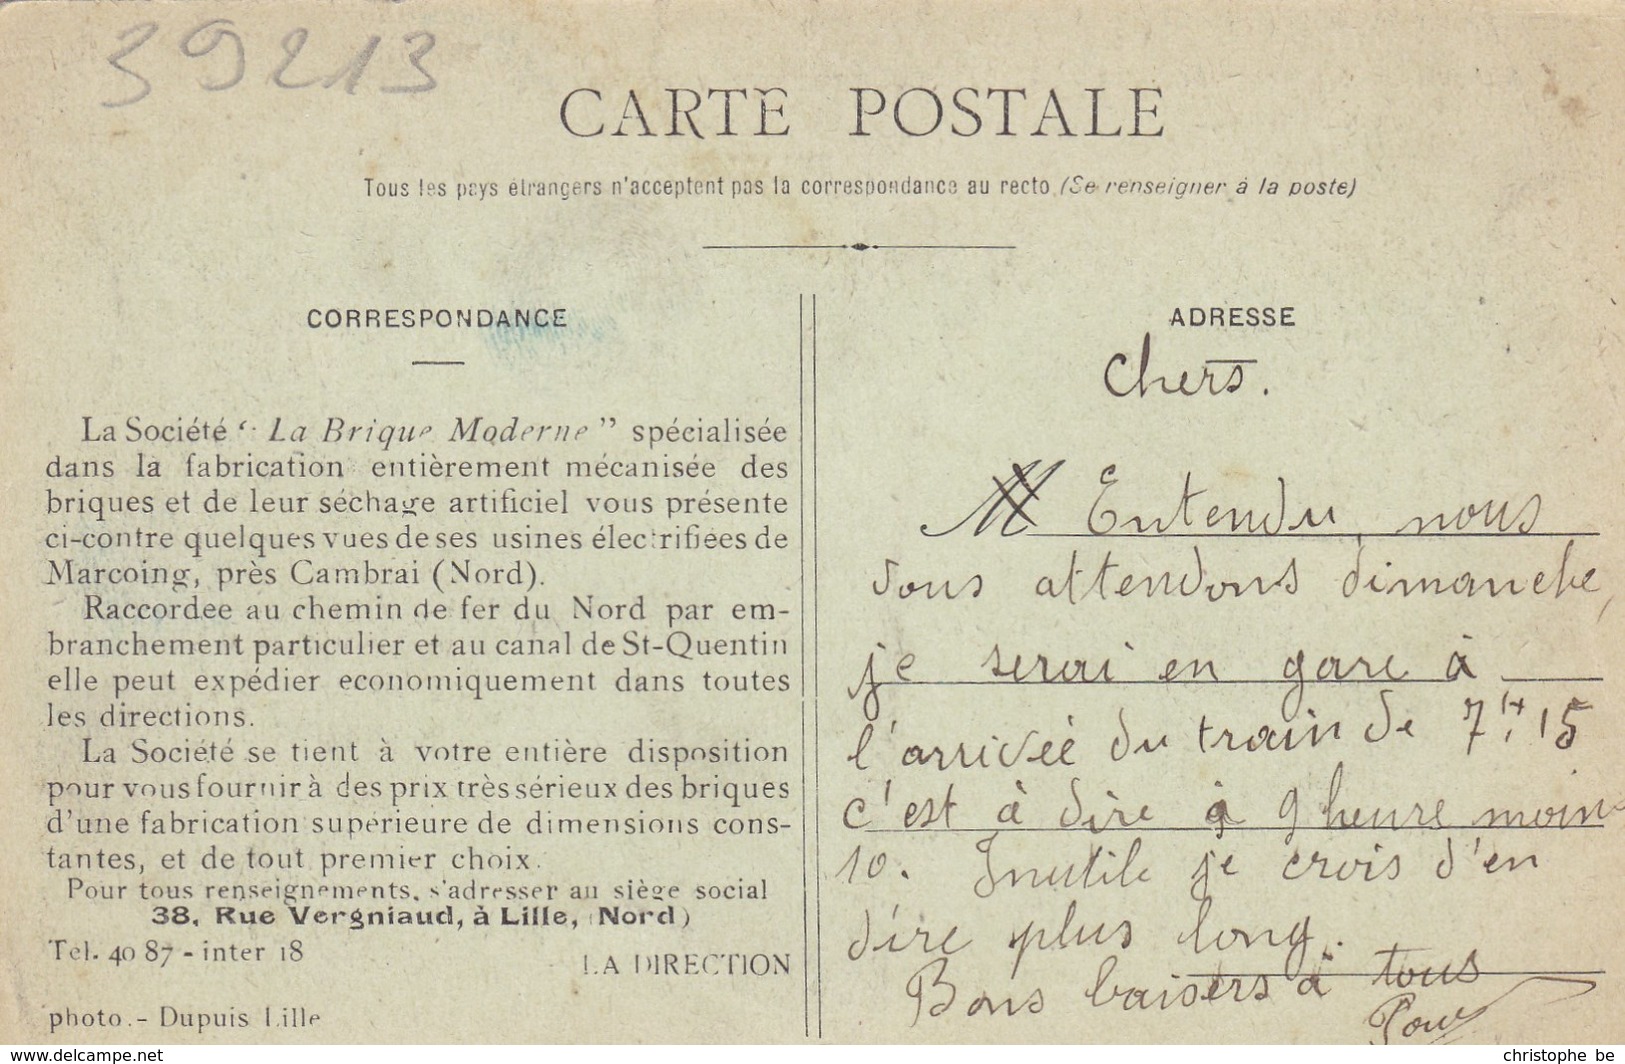 39213
CARTE POSTALE
Tous les pays étrangers n'acceptent pas la correspondance au recto (Se renseigner à la poste)
CORRESPONDANCE
La Société “ La Brique Moderne ” spécialisée
dans la fabrication entièrement mécanisée des
briques et de leur séchage artificiel vous présente
ci-contre quelques vues de ses usines électrifiées de
Marcoing, près Cambrai (Nord).
Raccordee au chemin de fer du Nord par em-
branchement particulier et au canal de St-Quentin
elle peut expédier economiquement dans toutes
les directions.
La Société se tient à votre entière disposition
pour vous fournir à des prix très sérieux des briques
d'une fabrication supérieure de dimensions cons-
tantes, et de tout premier choix.
Pour tous renseignements, s'adresser au siège social
38, Rue Vergniaud, à Lille, (Nord)
Tel. 40 87 - inter 18
LA DIRECTION
photo.- Dupuis Lille
ADRESSE
Chers.
M Entendu, nous
vous attendons dimanche,
je serai en gare à
l'arrivée du train de 7H,15
c'est à dire à 9 heure moins
10. Inutile je crois d'en
dire plus long.
Bons baisers à tous
christophe be